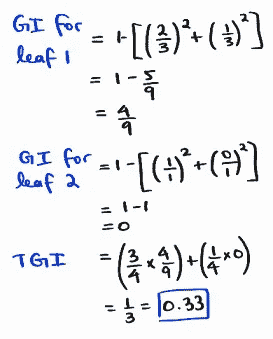 GI for leaf 1 = 1-[(2/3)² + (1/3)²]
= 1 - 5/9
= 4/9
GI for leaf 2 = 1-[(1/1)² + (0/1)²]
= 1-1
= 0
TGI = (3/4 × 4/9) + (1/4 × 0)
= 1/3 = 0.33